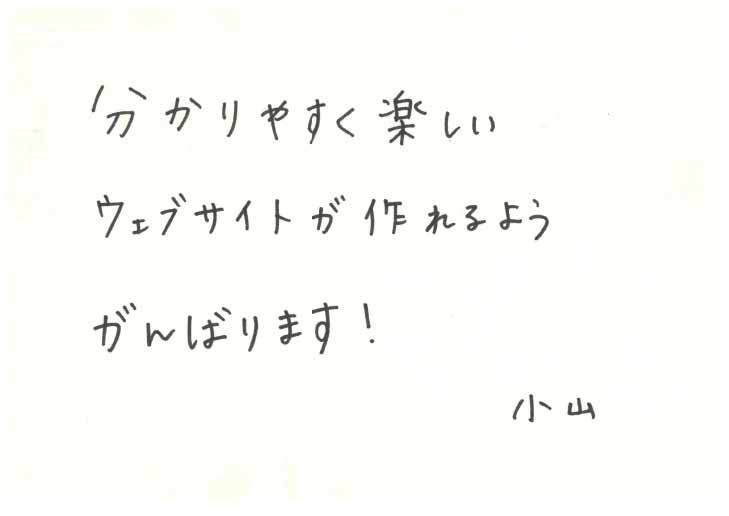 分かりやすく楽しい
ウェブサイトが作れるよう
がんばります！
小山